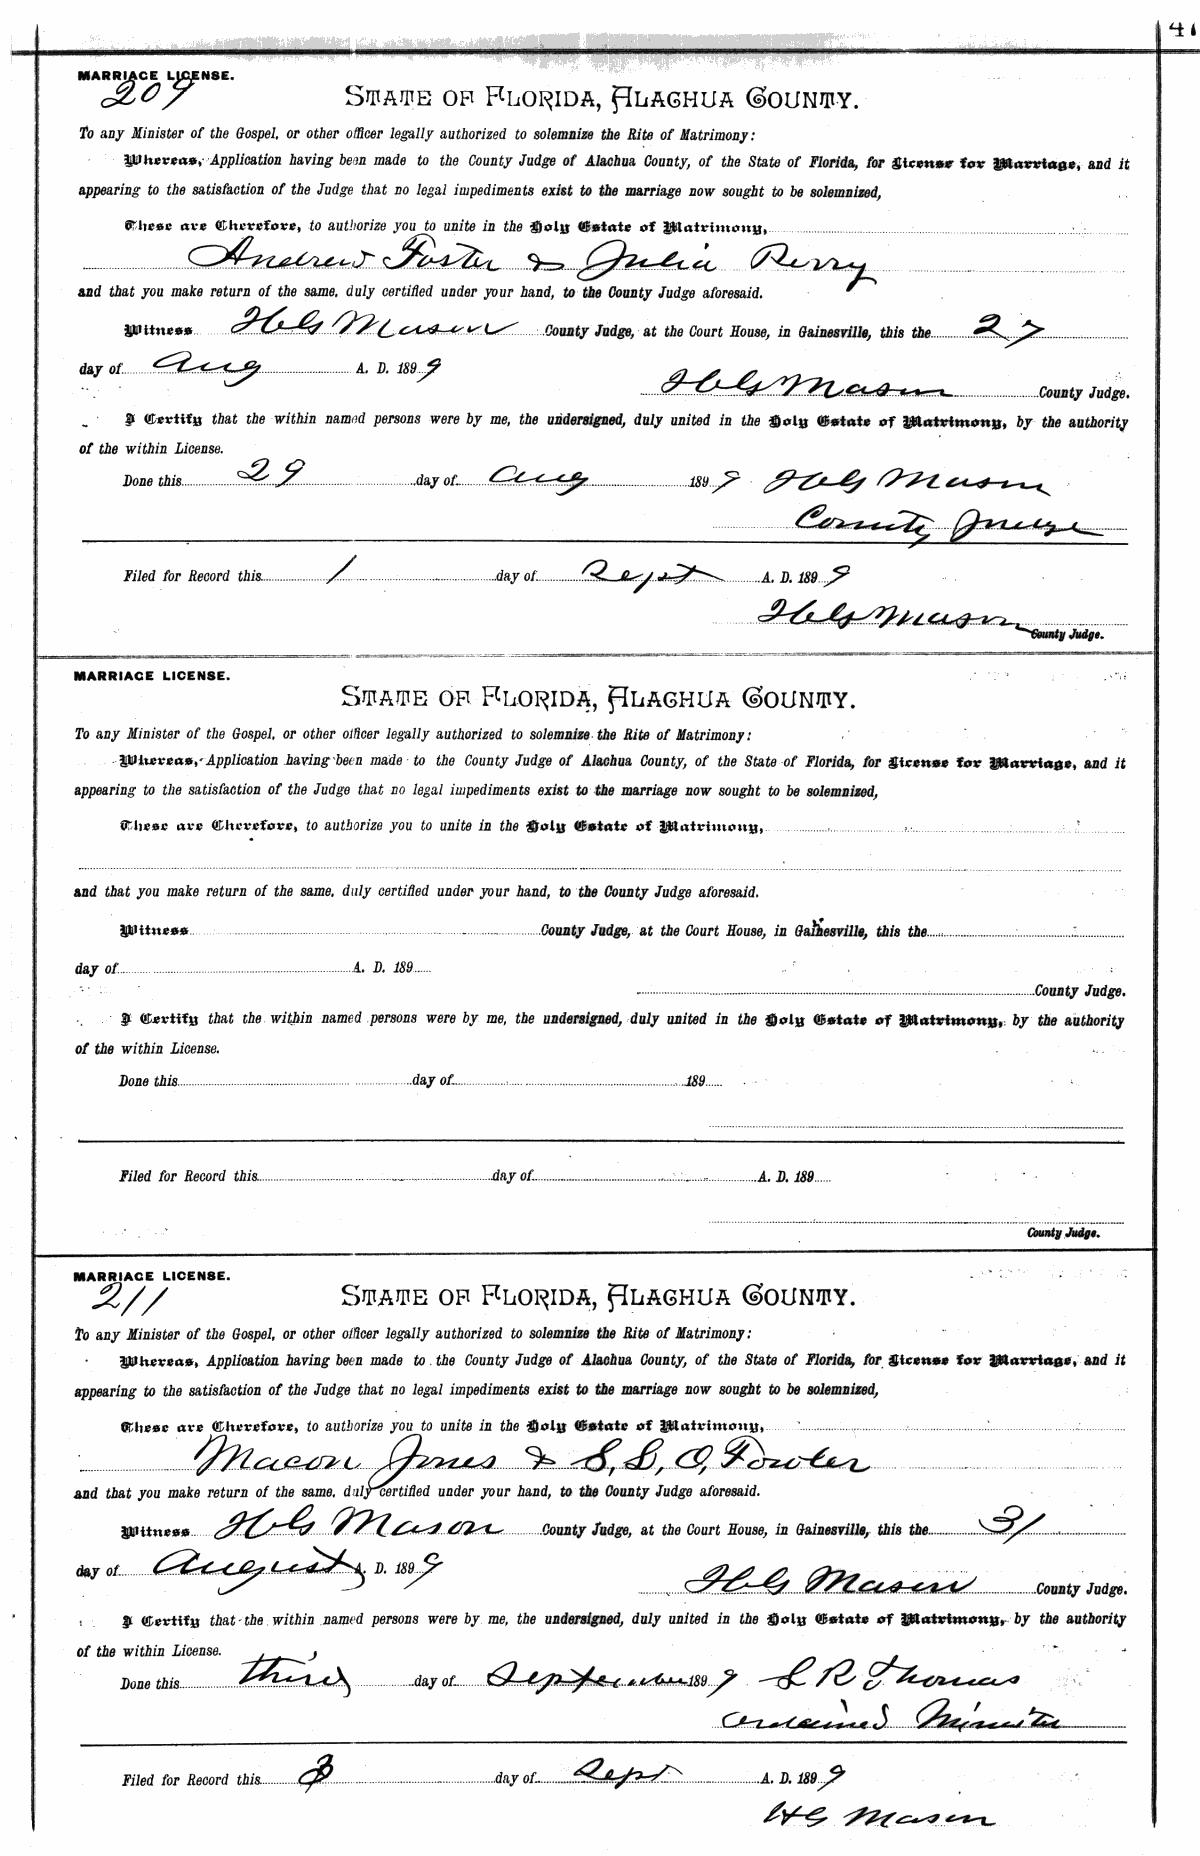 41
MARRIAGE LICENSE.
209
STATE OF FLORIDA, ALACHUA COUNTY.
To any Minister of the Gospel, or other officer legally authorized to solemnize the Rite of Matrimony:
Whereas, Application having been made to the County Judge of Alachua County, of the State of Florida, for License for Marriage, and it
appearing to the satisfaction of the Judge that no legal impediments exist to the marriage now sought to be solemnized,
These are Therefore, to authorize you to unite in the Holy Estate of Matrimony,
Andrew Foster & Julia Perry
and that you make return of the same, duly certified under your hand, to the County Judge aforesaid.
Witness H G Mason County Judge, at the Court House, in Gainesville, this the 27
day of Aug A. D. 1899
H G Mason County Judge.
I Certify that the within named persons were by me, the undersigned, duly united in the Holy Estate of Matrimony, by the authority
of the within License.
Done this 29 day of Aug 1899 H G Mason
County Judge
Filed for Record this 1 day of Sept A. D. 1899
H G Mason
County Judge.
MARRIAGE LICENSE.
STATE OF FLORIDA, ALACHUA COUNTY.
To any Minister of the Gospel, or other officer legally authorized to solemnize the Rite of Matrimony:
Whereas, Application having been made to the County Judge of Alachua County, of the State of Florida, for License for Marriage, and it
appearing to the satisfaction of the Judge that no legal impediments exist to the marriage now sought to be solemnized,
These are Therefore, to authorize you to unite in the Holy Estate of Matrimony,
and that you make return of the same, duly certified under your hand, to the County Judge aforesaid.
Witness County Judge, at the Court House, in Gainesville, this the
day of A. D. 189
County Judge.
I Certify that the within named persons were by me, the undersigned, duly united in the Holy Estate of Matrimony, by the authority
of the within License.
Done this day of 189
Filed for Record this day of A. D. 189
County Judge.
MARRIAGE LICENSE.
211
STATE OF FLORIDA, ALACHUA COUNTY.
To any Minister of the Gospel, or other officer legally authorized to solemnize the Rite of Matrimony:
Whereas, Application having been made to the County Judge of Alachua County, of the State of Florida, for License for Marriage, and it
appearing to the satisfaction of the Judge that no legal impediments exist to the marriage now sought to be solemnized,
These are Therefore, to authorize you to unite in the Holy Estate of Matrimony,
Macon Jones & S, L, O, Fowler
and that you make return of the same, duly certified under your hand, to the County Judge aforesaid.
Witness H G Mason County Judge, at the Court House, in Gainesville, this the 31
day of August A. D. 1899
H G Mason County Judge.
I Certify that the within named persons were by me, the undersigned, duly united in the Holy Estate of Matrimony, by the authority
of the within License.
Done this third day of September 1899 S R Thomas
ordained Minister
Filed for Record this 3 day of Sept A. D. 1899
H G Mason